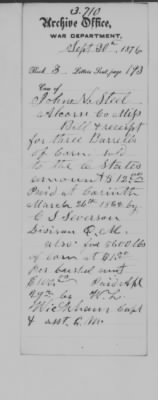 3.710
Archive Office,
WAR DEPARTMENT,
Sept 30th, 1876
Book 3 Letters Sent, page 193
Case of
John N. Steel
Alcorn Co Miss
Bill & receipt
for three Barrels
of Corn, sold
to the C States
amount $12
Paid at Corinth
March 26th 1862 by
C S Severson
Division Q.M.
also for 5600 lbs
of corn at
Per bushel amt
Paid Apl
29th by W. L.
Wickham Capt
& asst. Q. M.